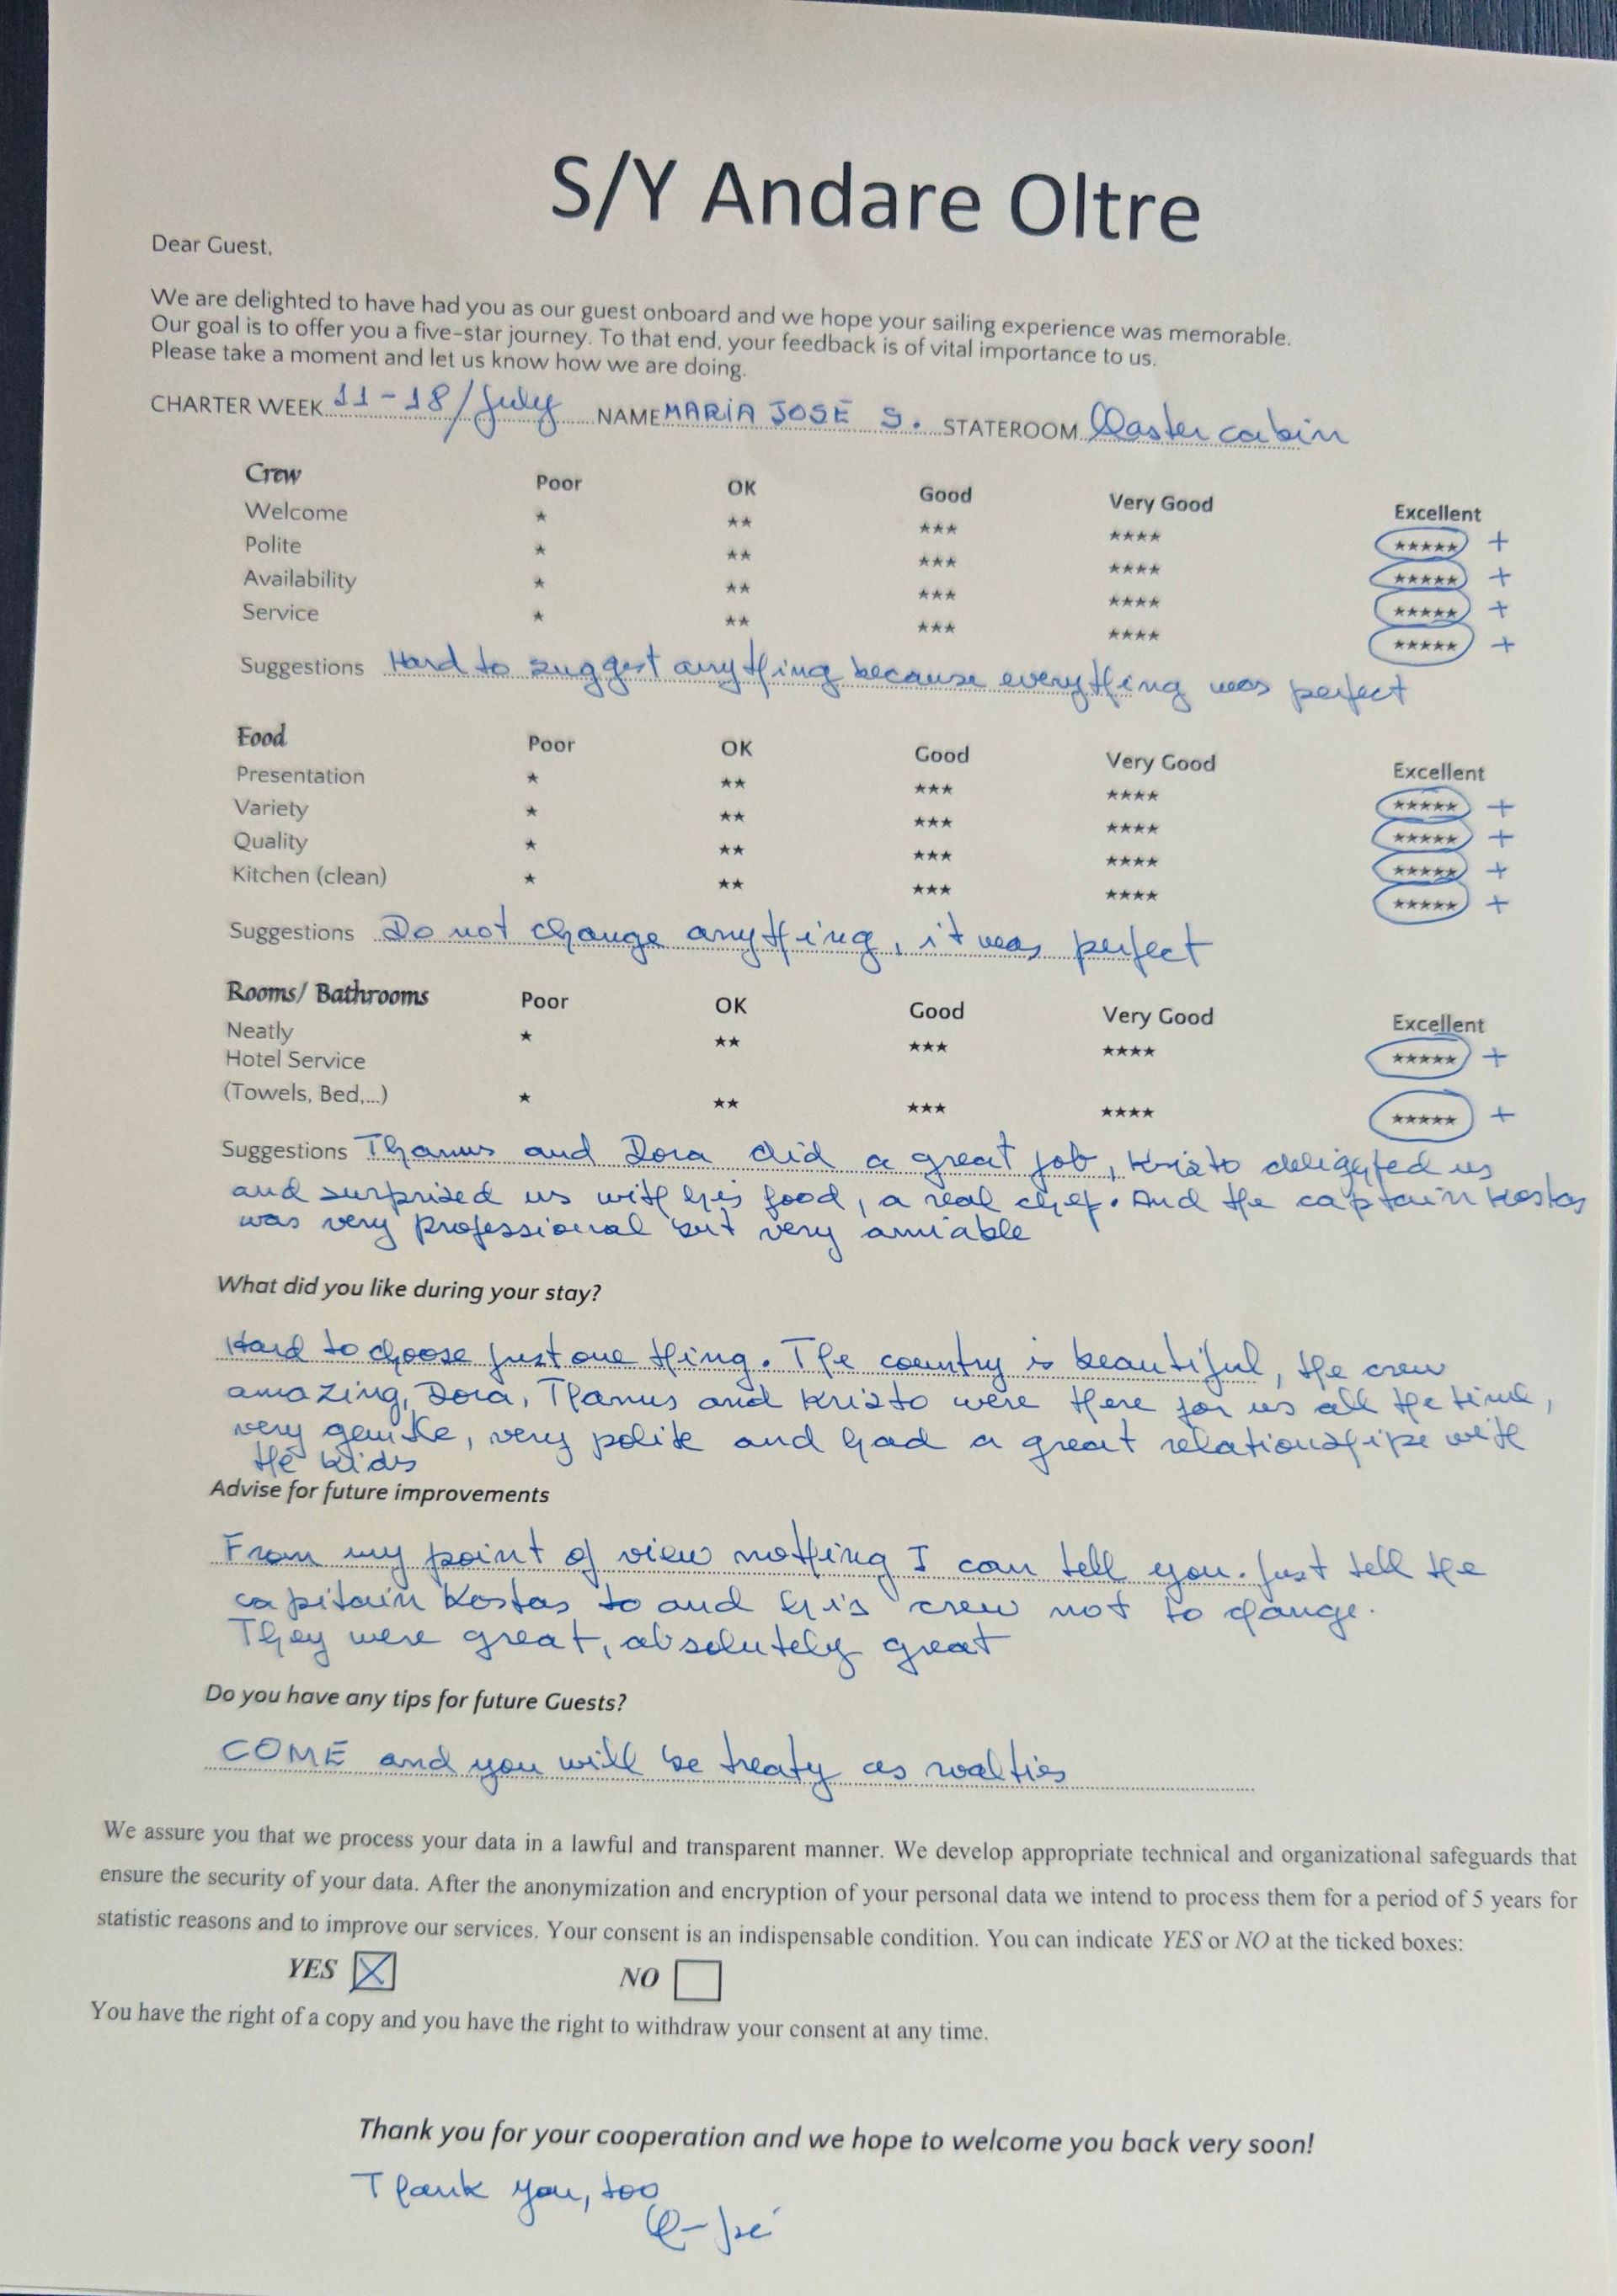 S/Y Andare Oltre
Dear Guest,
We are delighted to have had you as our guest onboard and we hope your sailing experience was memorable.
Our goal is to offer you a five-star journey. To that end, your feedback is of vital importance to us.
Please take a moment and let us know how we are doing.
CHARTER WEEK 11-18/July NAME MARIA JOSE S. STATEROOM Master cabin
Crew Poor OK Good Very Good Excellent
Welcome ★ ★★ ★★★ ★★★★ ★★★★★ +
Polite ★ ★★ ★★★ ★★★★ ★★★★★ +
Availability ★ ★★ ★★★ ★★★★ ★★★★★ +
Service ★ ★★ ★★★ ★★★★ ★★★★★ +
Suggestions Hard to suggest anything because everything was perfect
Food Poor OK Good Very Good Excellent
Presentation ★ ★★ ★★★ ★★★★ ★★★★★ +
Variety ★ ★★ ★★★ ★★★★ ★★★★★ +
Quality ★ ★★ ★★★ ★★★★ ★★★★★ +
Kitchen (clean) ★ ★★ ★★★ ★★★★ ★★★★★ +
Suggestions Do not change anything, it was perfect
Rooms/ Bathrooms Poor OK Good Very Good Excellent
Neatly ★ ★★ ★★★ ★★★★ ★★★★★ +
Hotel Service
(Towels, Bed,...) ★ ★★ ★★★ ★★★★ ★★★★★ +
Suggestions Thanus and Dora did a great job, Kristo delighted us
and surprised us with his food, a real chef. And the captain Kostas
was very professional but very amiable
What did you like during your stay?
Hard to choose just one thing. The country is beautiful, the crew
amazing, Dora, Thanus and Kristo were there for us all the time,
very gentle, very polite and had a great relationshipe with
the kids
Advise for future improvements
From my point of view nothing I can tell you. Just tell the
capitain Kostas to and his crew not to change.
They were great, absolutely great
Do you have any tips for future Guests?
COME and you will be treaty as roalties
We assure you that we process your data in a lawful and transparent manner. We develop appropriate technical and organizational safeguards that
ensure the security of your data. After the anonymization and encryption of your personal data we intend to process them for a period of 5 years for
statistic reasons and to improve our services. Your consent is an indispensable condition. You can indicate YES or NO at the ticked boxes:
YES NO
You have the right of a copy and you have the right to withdraw your consent at any time.
Thank you for your cooperation and we hope to welcome you back very soon!
Thank you, too